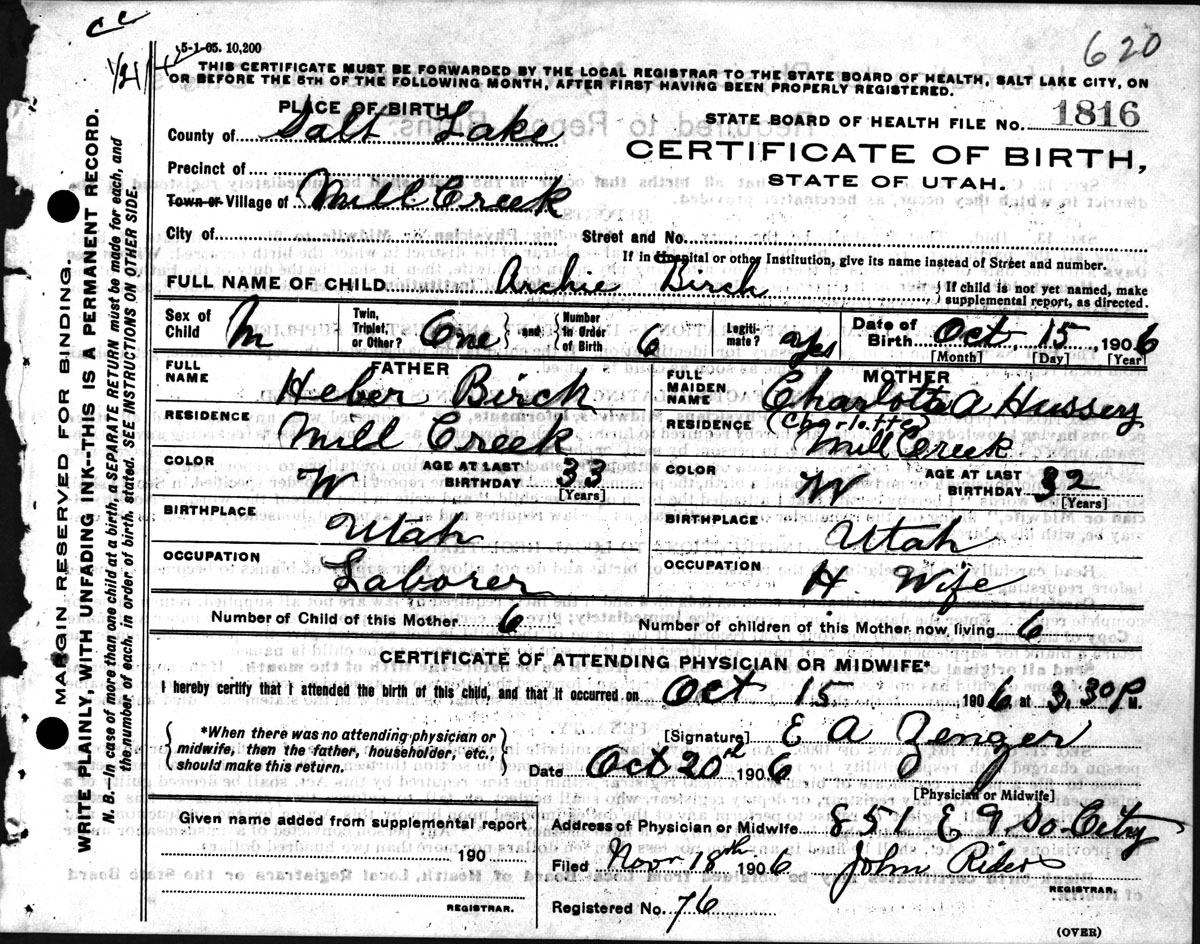 cc
1/21/42
620
5-1-05. 10,200
THIS CERTIFICATE MUST BE FORWARDED BY THE LOCAL REGISTRAR TO THE STATE BOARD OF HEALTH, SALT LAKE CITY, ON
OR BEFORE THE 5TH OF THE FOLLOWING MONTH, AFTER FIRST HAVING BEEN PROPERLY REGISTERED.
PLACE OF BIRTH
STATE BOARD OF HEALTH FILE NO. 1816
County of Salt Lake
CERTIFICATE OF BIRTH,
STATE OF UTAH.
Precinct of
Town or Village of Mill Creek
City of Street and No.
If in Hospital or other Institution, give its name instead of Street and number.
FULL NAME OF CHILD Archie Birch { If child is not yet named, make supplemental report, as directed.
Sex of Child M Twin, Triplet, or Other? One } and { Number in Order of Birth 6 Legitimate? Yes Date of Birth Oct, 15, 1906
[Month] [Day] [Year]
FATHER
FULL NAME Heber Birch
RESIDENCE Mill Creek
COLOR W AGE AT LAST BIRTHDAY 33
[Years]
BIRTHPLACE Utah
OCCUPATION Laborer
MOTHER
FULL MAIDEN NAME Charlotta A Hussery
(Charlotte)
RESIDENCE Mill Creek
COLOR W AGE AT LAST BIRTHDAY 32
[Years]
BIRTHPLACE Utah
OCCUPATION H. Wife
Number of Child of this Mother 6 Number of children of this Mother now living 6
CERTIFICATE OF ATTENDING PHYSICIAN OR MIDWIFE*
I hereby certify that I attended the birth of this child, and that it occurred on Oct 15 1906 at 3.30 P. M.
{ *When there was no attending physician or
midwife, then the father, householder, etc.,
should make this return. }
[Signature] E A Zenger
Date Oct 20th 1906
[Physician or Midwife]
Given name added from supplemental report
190
REGISTRAR.
Address of Physician or Midwife 851 E 9 So. City
Filed Novr 18th 1906 John Rider
REGISTRAR.
Registered No. 76
(OVER)
MARGIN RESERVED FOR BINDING.
WRITE PLAINLY, WITH UNFADING INK--THIS IS A PERMANENT RECORD.
N. B.—In case of more than one child at a birth, a SEPARATE RETURN must be made for each, and
the number of each, in order of birth, stated. SEE INSTRUCTIONS ON OTHER SIDE.